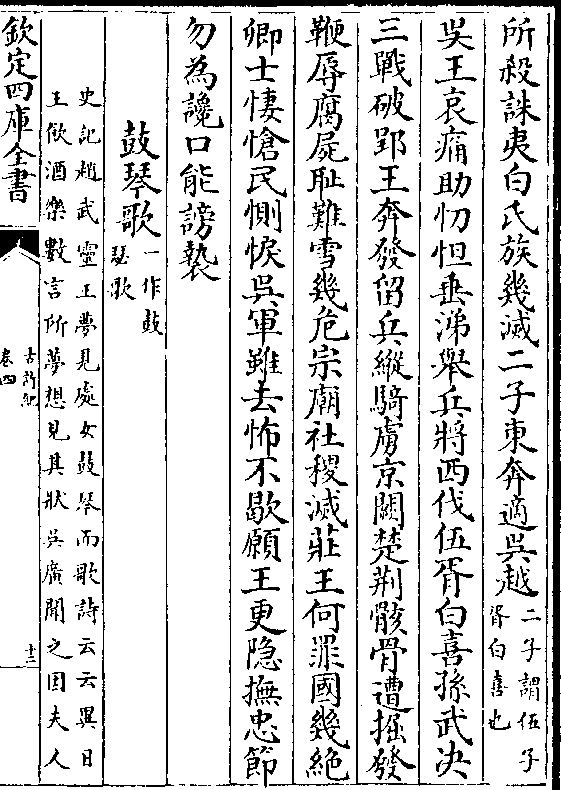 所殺誅夷白氏族幾滅二子東奔適吳越二子謂伍子
胥白喜也
吳王哀痛助忉怛垂涕舉兵將西伐伍胥白喜孫武決
三戰破郢王奔發留兵縱騎虜京闕楚荆骸骨遭掘發
鞭辱腐屍恥難雪幾危宗廟社稷滅莊王何罪國幾絶
卿士悽愴民惻悷吳軍雖去怖不歇願王更隐撫忠節
勿為讒口能謗䙝
鼓琴歌一作鼓
瑟歌
史記趙武靈王夢見處女鼓琴而歌詩云云異日
王飲酒樂數言所夢想見其狀吳廣聞之因夫人
欽定四庫全書
古詩紀
卷四
十三